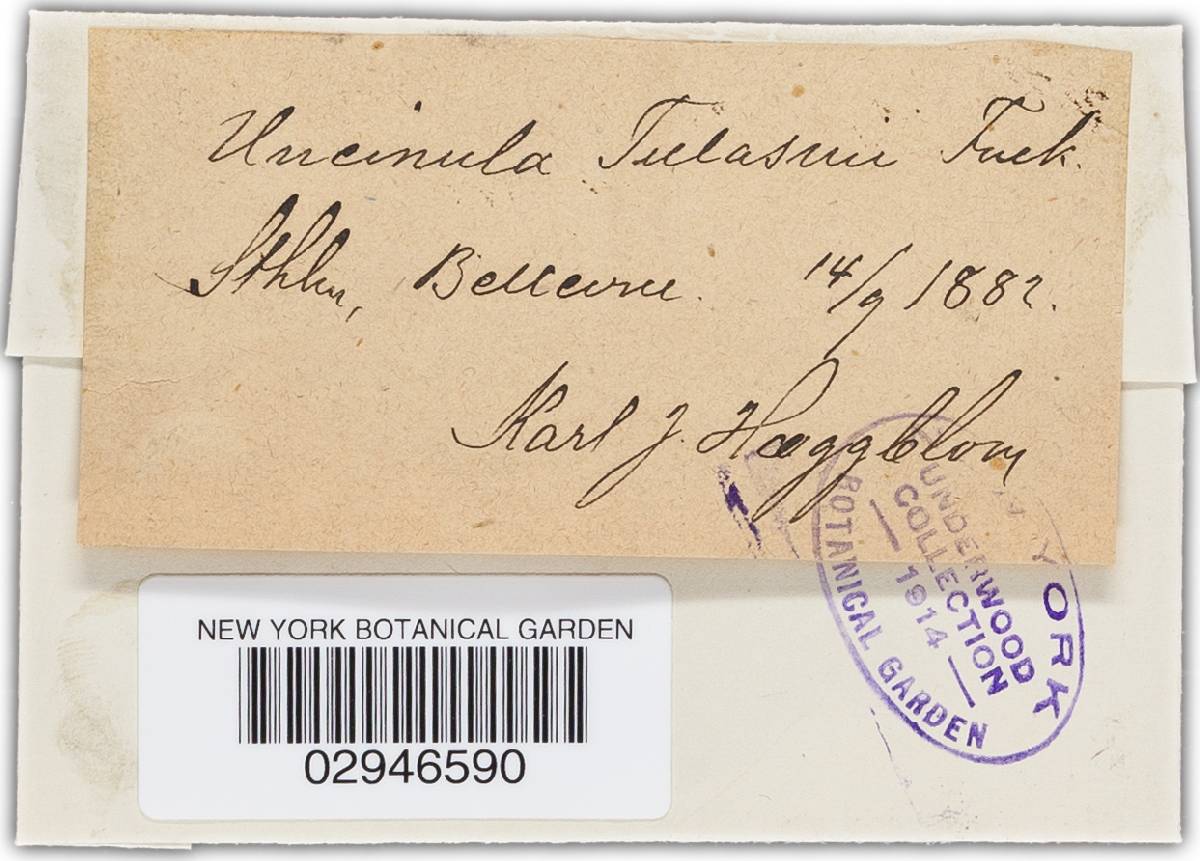 Uncinula Tulasnii Fuck.
Sthlm, Bellevue. 14/9 1882.
Karl J. Hæggblom
NEW YORK BOTANICAL GARDEN
02946590
YORK
BOTANICAL GARDEN
UNDERWOOD
COLLECTION
— 1914 —